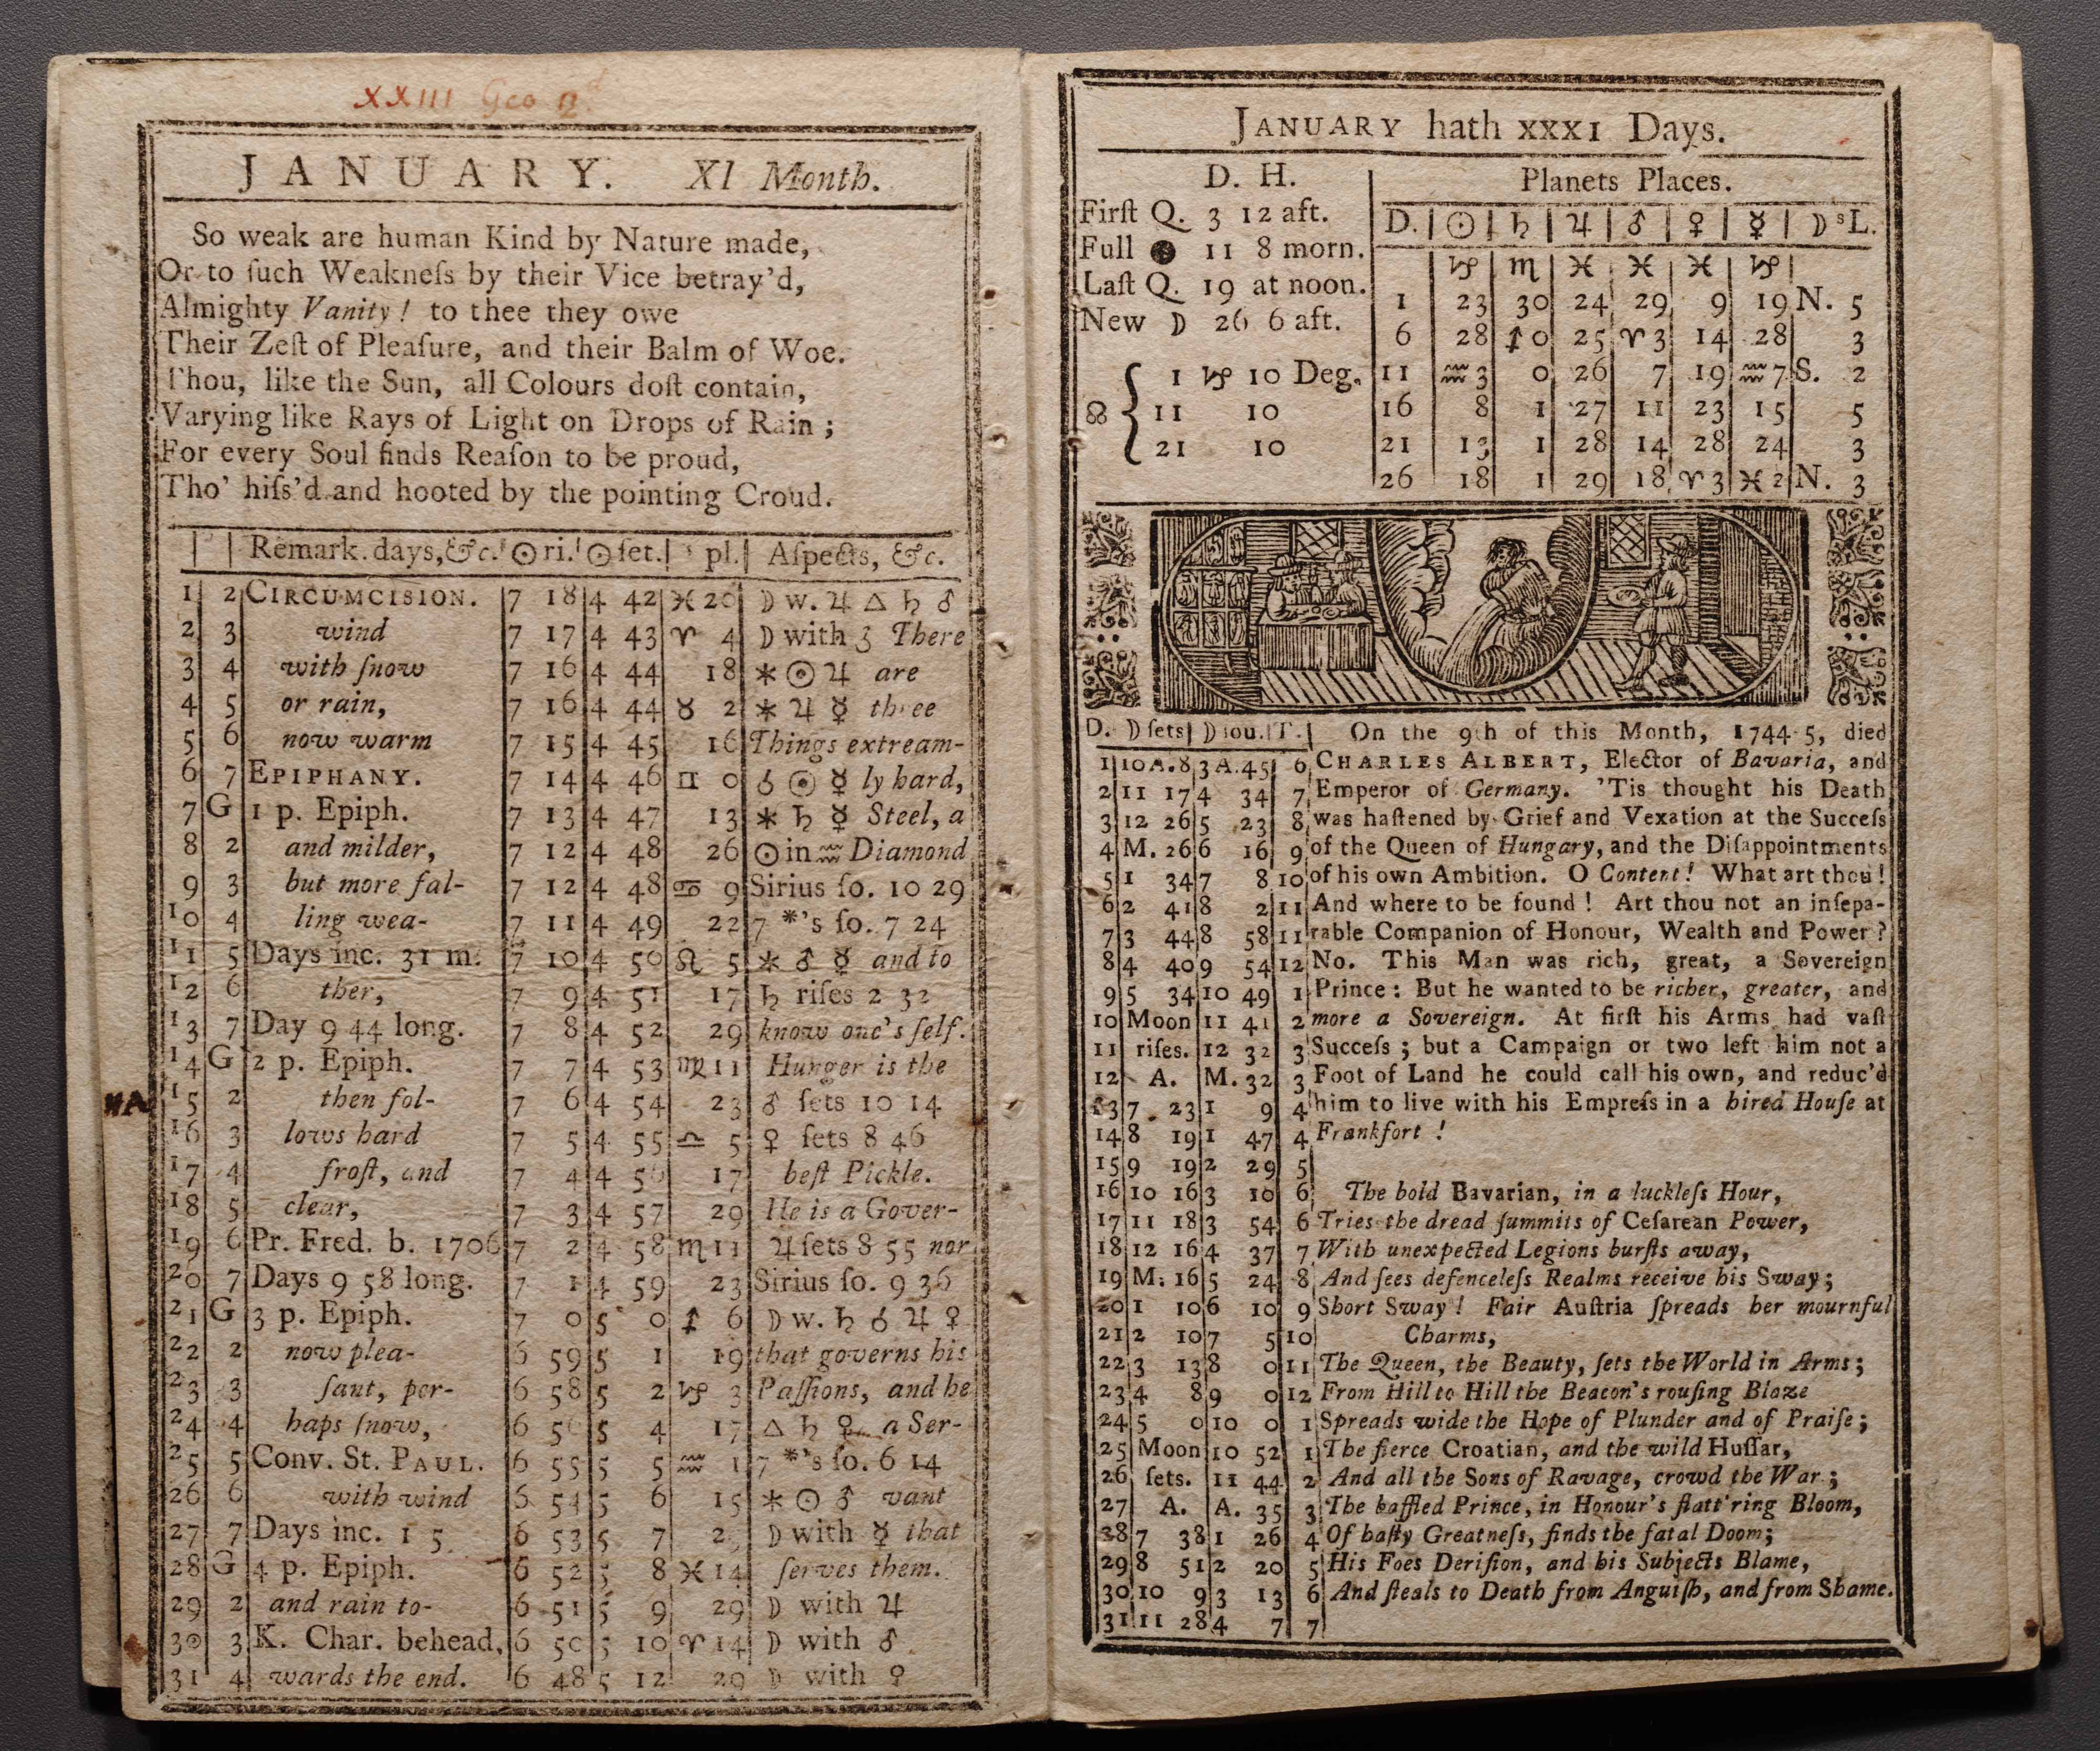 XXIII Geo II.d
JANUARY. XI Month.
So weak are human Kind by Nature made,
Or to ſuch Weakneſs by their Vice betray'd,
Almighty Vanity! to thee they owe
Their Zeſt of Pleaſure, and their Balm of Woe.
Thou, like the Sun, all Colours doſt contain,
Varying like Rays of Light on Drops of Rain;
For every Soul finds Reaſon to be proud,
Tho' hiſs'd and hooted by the pointing Croud.
Remark. days, &c. ☉ ri. ☉ ſet. pl. Aſpects, &c.
1 2 CIRCUMCISION. 7 18 4 42 ♓ 20 ☽ w. ♃ △ ♄ ♂
2 3 wind 7 17 4 43 ♈ 4 ☽ with ♂ There
3 4 with ſnow 7 16 4 44 18 ⚹ ☉ ♃ are
4 5 or rain, 7 16 4 44 ♉ 2 ⚹ ♃ ☿ three
5 6 now warm 7 15 4 45 16 Things extream-
6 7 EPIPHANY. 7 14 4 46 ♊ 0 ☌ ☉ ☿ ly hard,
7 G 1 p. Epiph. 7 13 4 47 13 ⚹ ♄ ☿ Steel, a
8 2 and milder, 7 12 4 48 26 ☉ in ♒ Diamond
9 3 but more fal- 7 12 4 48 ♋ 9 Sirius ſo. 10 29
10 4 ling wea- 7 11 4 49 22 7 *'s ſo. 7 24
11 5 Days inc. 31 m. 7 10 4 50 ♌ 5 ⚹ ♂ ☿ and to
12 6 ther, 7 9 4 51 17 ♄ riſes 2 32
13 7 Day 9 44 long. 7 8 4 52 29 know one's ſelf.
14 G 2 p. Epiph. 7 7 4 53 ♍ 11 Hunger is the
15 2 then fol- 7 6 4 54 23 ♂ ſets 10 14
16 3 lows hard 7 5 4 55 ♎ 5 ♀ ſets 8 46
17 4 froſt, and 7 4 4 17 beſt Pickle.
18 5 clear, 7 3 4 57 29 He is a Gover-
19 6 Pr. Fred. b. 1706 7 2 4 58 ♏ 11 ♃ ſets 8 55 nor
20 7 Days 9 58 long. 7 1 4 59 23 Sirius ſo. 9 36
21 G 3 p. Epiph. 7 0 5 0 ♐ 6 ☽ w. ♄ ☌ ♃ ♀
22 2 now plea- 6 59 5 1 19 that governs his
23 3 ſant, per- 6 58 5 2 ♑ 3 Paſſions, and he
24 4 haps ſnow, 6 5 4 17 △ ♄ ♀ a Ser-
25 5 Conv. St. PAUL. 6 55 5 5 ♒ 1 7 *'s ſo. 6 14
26 6 with wind 6 54 5 6 15 ⚹ ☉ ♂ vant
27 7 Days inc. 1 5 6 53 5 7 ☽ with ☿ that
28 G 4 p. Epiph. 6 52 5 8 ♓ 14 ſerves them.
29 2 and rain to- 6 51 5 9 29 ☽ with ♃
30 3 K. Char. behead. 6 50 5 10 ♈ 14 ☽ with ♂
31 4 wards the end. 6 48 5 12 29 ☽ with ♀
JANUARY hath XXXI Days.
D. H. Planets Places.
Firſt Q. 3 12 aft.
Full ● 11 8 morn.
Laſt Q. 19 at noon.
New ☽ 26 6 aft.
☊ { 1 ♑ 10 Deg.
11 10
21 10
D. ☉ ♄ ♃ ♂ ♀ ☿ ☽'s L.
♑ ♏ ♓ ♓ ♓ ♑
1 23 30 24 29 9 19 N. 5
6 28 ♐ 0 25 ♈ 3 14 28 3
11 ♒ 3 0 26 7 19 ♒ 7 S. 2
16 8 1 27 11 23 15 5
21 13 1 28 14 28 24 3
26 18 1 29 18 ♈ 3 ♓ 2 N. 3
D. ☽ ſets ☽ ſou. T.
1 10 A. 8 3 A. 45 6
2 11 17 4 34 7
3 12 26 5 23 8
4 M. 26 6 16 9
5 1 34 7 8 10
6 2 41 8 2 11
7 3 44 8 58 11
8 4 40 9 54 12
9 5 34 10 49 1
10 Moon 11 41 2
11 riſes. 12 32 3
12 A. M. 32 3
13 7 23 1 9 4
14 8 19 1 47 4
15 9 19 2 29 5
16 10 16 3 10 6
17 11 18 3 54 6
18 12 16 4 37 7
19 M. 16 5 24 8
20 1 10 6 10 9
21 2 10 7 5 10
22 3 13 8 0 11
23 4 8 9 0 12
24 5 0 10 0 1
25 Moon 10 52 1
26 ſets. 11 44 2
27 A. A. 35 3
28 7 38 1 26 4
29 8 51 2 20 5
30 10 9 3 13 6
31 11 28 4 7 7
On the 9th of this Month, 1744-5, died
CHARLES ALBERT, Elector of Bavaria, and
Emperor of Germany. 'Tis thought his Death
was haſtened by Grief and Vexation at the Succeſs
of the Queen of Hungary, and the Diſappointments
of his own Ambition. O Content! What art thou!
And where to be found! Art thou not an inſepa-
rable Companion of Honour, Wealth and Power?
No. This Man was rich, great, a Sovereign
Prince: But he wanted to be richer, greater, and
more a Sovereign. At firſt his Arms had vaſt
Succeſs; but a Campaign or two left him not a
Foot of Land he could call his own, and reduc'd
him to live with his Empreſs in a hired Houſe at
Frankfort!
The bold Bavarian, in a luckleſs Hour,
Tries the dread ſummits of Ceſarean Power,
With unexpected Legions burſts away,
And ſees defenceleſs Realms receive his Sway;
Short Sway! Fair Auſtria ſpreads her mournful
Charms,
The Queen, the Beauty, ſets the World in Arms;
From Hill to Hill the Beacon's rouſing Blaze
Spreads wide the Hope of Plunder and of Praiſe;
The fierce Croatian, and the wild Huſſar,
And all the Sons of Ravage, crowd the War;
The baffled Prince, in Honour's flatt'ring Bloom,
Of haſty Greatneſs, finds the fatal Doom;
His Foes Deriſion, and his Subjects Blame,
And ſteals to Death from Anguiſh, and from Shame.